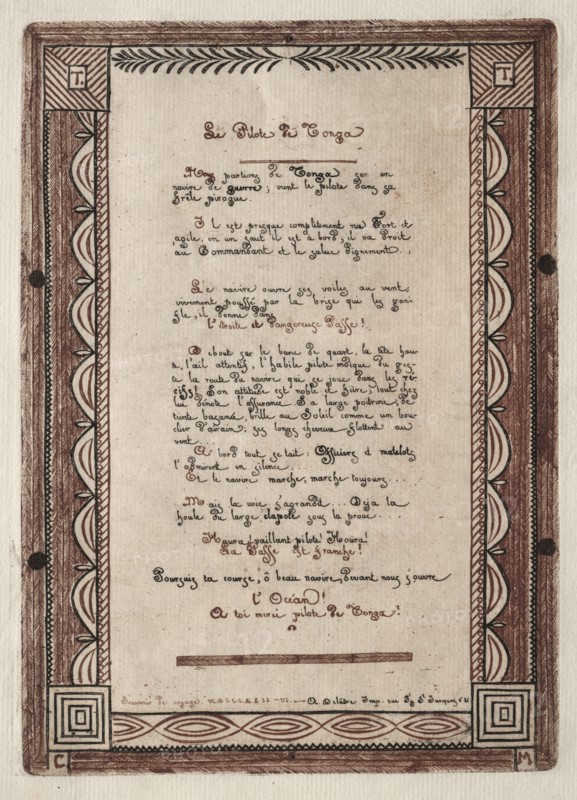 T. T.
Le Pilote de Tonga
Nous partions de Tonga sur un
navire de guerre ; vient le pilote dans sa
frêle pirogue.
Il est presque complètement nu Fort et
agile, en un saut il est à bord ; il va droit
au Commandant et le salue dignement.
Le navire ouvre ses voiles au vent,
vivement poussé par la brise qui les gon-
fle, il donne dans
l'étroite et dangereuse Passe !
Debout sur le banc de quart, la tête hau-
te, l'œil attentif, l'habile pilote indique du ges-
te la route du navire qui se joue dans les ré-
cifs. Son attitude est noble et fière ; tout chez
lui dénote l'assurance. Sa large poitrine, de
teinte basanée, brille au Soleil comme un bou-
clier d'airain ; ses longs cheveux flottent au
vent...
A bord tout se tait. Officiers et matelots
l'admirent en silence...
Et le navire marche, marche toujours....
Mais la voie s'agrandit... Déja la
houle du large clapote sous la proue....
Houra ! vaillant pilote ! Houra !
La Passe est franchie !
Poursuis ta course, ô beau navire, devant nous s'ouvre
l'Océan !
A toi merci pilote de Tonga !
Souvenir de voyage A Delâtre Imp. rue Fg St Jacques
C. M